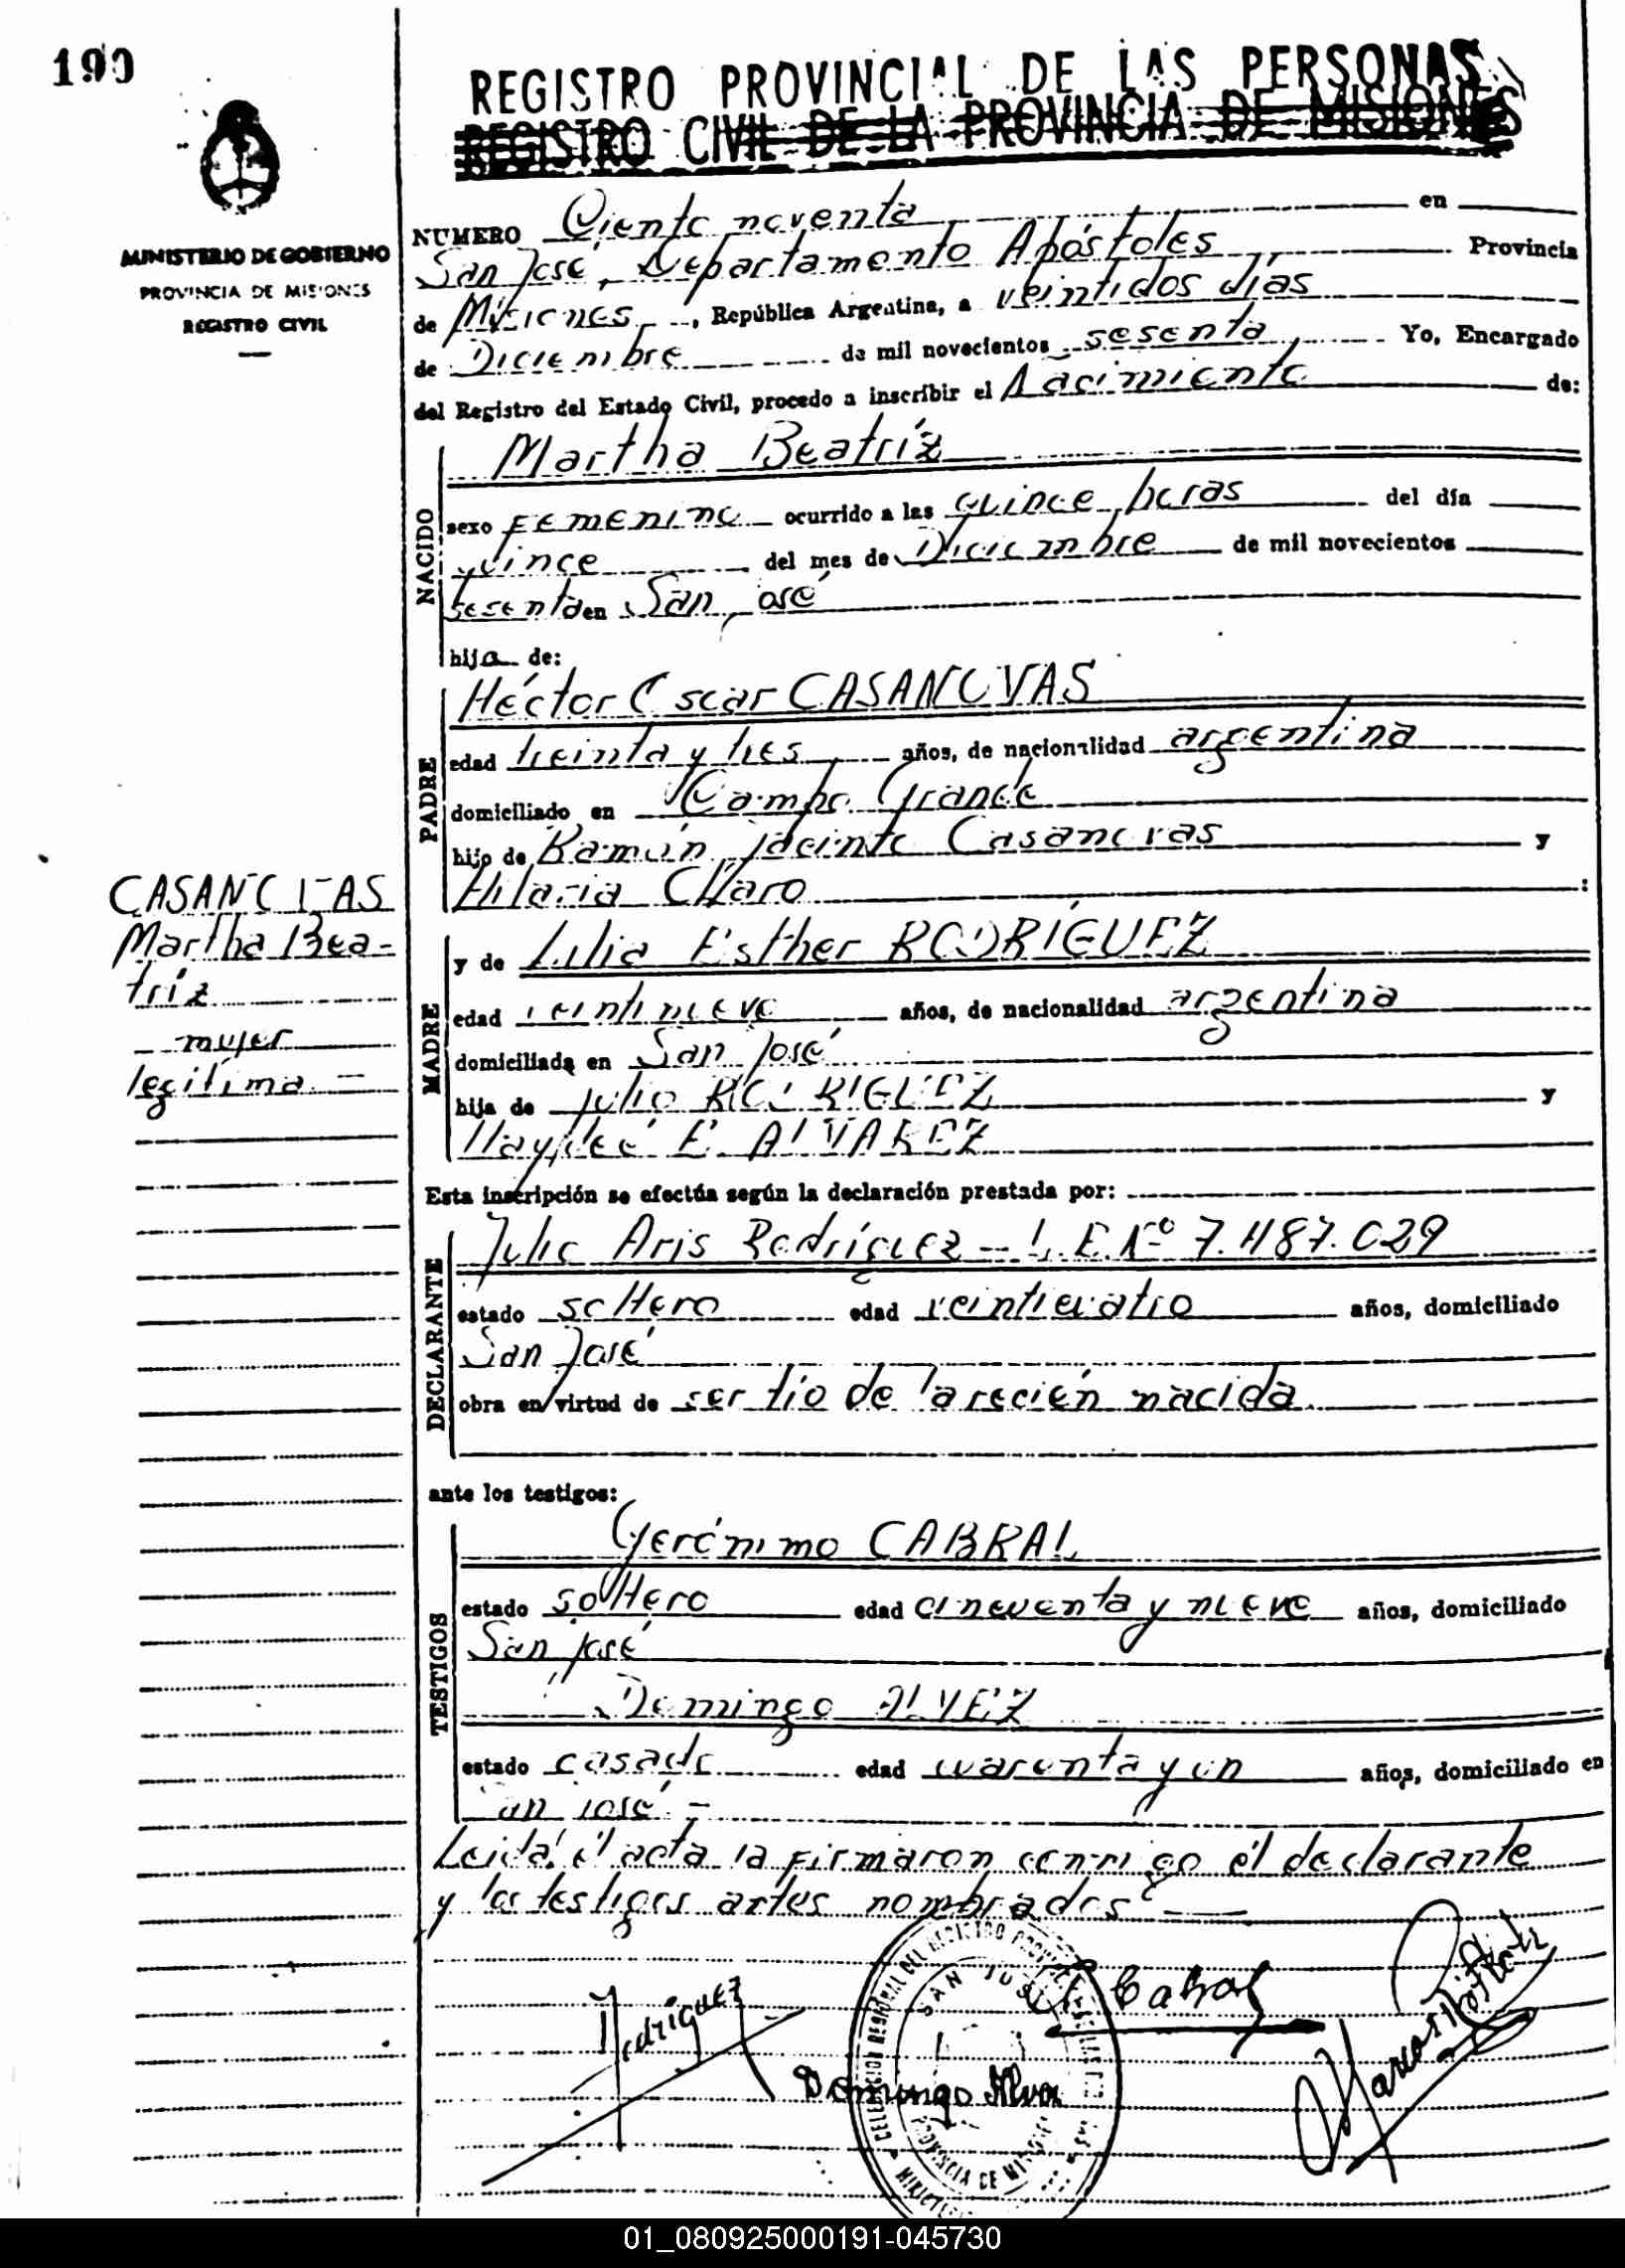 190
REGISTRO PROVINCIAL DE LAS PERSONAS
REGISTRO CIVIL DE LA PROVINCIA DE MISIONES
MINISTERIO DE GOBIERNO
PROVINCIA DE MISIONES
REGISTRO CIVIL
NUMERO Ciento noventa en
San José, Departamento Apóstoles Provincia
de Misiones, República Argentina, a veintidos días
de Diciembre de mil novecientos sesenta Yo, Encargado
del Registro del Estado Civil, procedo a inscribir el Nacimiento de:
NACIDO
Martha Beatríz
sexo Femenino ocurrido a las quince horas del día
quince del mes de Diciembre de mil novecientos
sesenta en San José
hija de:
PADRE
Héctor Oscar CASANOVAS
edad treinta y tres años, de nacionalidad argentina
domiciliado en Campo Grande
hijo de Ramón Jacinto Casanovas y
Hilaria Claro :
CASANOVAS
Martha Bea-
tríz
mujer
legítima.-
MADRE
y de Lilia Esther RODRÍGUEZ
edad veintinueve años, de nacionalidad argentina
domiciliada en San José
hija de Julio RODRIGUEZ y
Haydeé E. ALVAREZ
Esta inscripción se efectúa según la declaración prestada por:
DECLARANTE
Julio Aris Rodríguez - L.E. Nº 7.487.029
estado soltero edad veinticuatro años, domiciliado
San José
obra en virtud de ser tío de la recién nacida.
ante los testigos:
TESTIGOS
Gerónimo CABRAL
estado soltero edad cincuenta y nueve años, domiciliado
San José
Domingo ALVEZ
estado casado edad cuarenta y un años, domiciliado en
San José.-
Leida el acta la firmaron conmigo el declarante
y los testigos antes nombrados.-
Rodriguez
Cabral
Domingo Alvez
SAN JOSE
PROVINCIA DE MISIONES
01_080925000191-045730